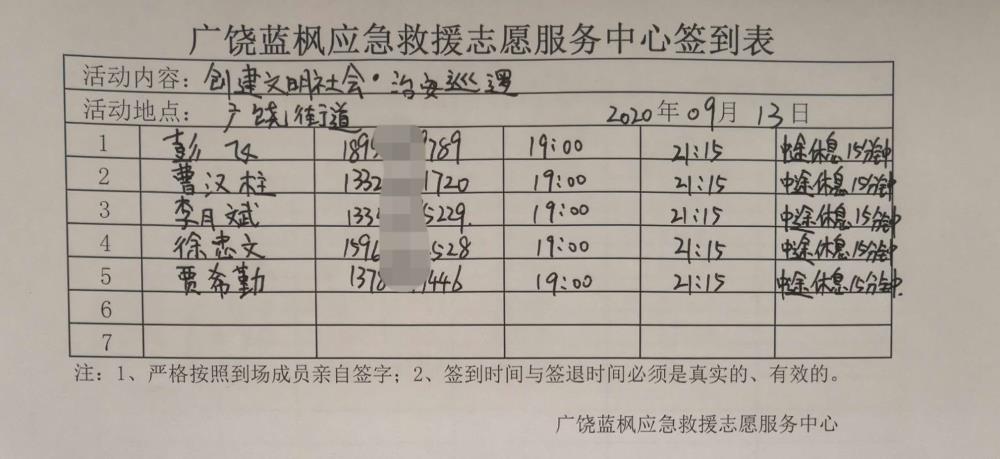 广饶蓝枫应急救援志愿服务中心签到表
活动内容：创建文明社会·治安巡逻
活动地点：广饶街道 2020年09月13日
1 彭飞 1895 9789 19:00 21:15 中途休息15分钟
2 曹汉柱 1332 1720 19:00 21:15 中途休息15分钟
3 李月斌 133 5229. 19:00 21:15 中途休息15分钟
4 徐忠文 1596 528 19:00 21:15 中途休息15分钟
5 贾希勤 1378 1446 19:00 21:15 中途休息15分钟.
6
7
注：1、严格按照到场成员亲自签字；2、签到时间与签退时间必须是真实的、有效的。
广饶蓝枫应急救援志愿服务中心